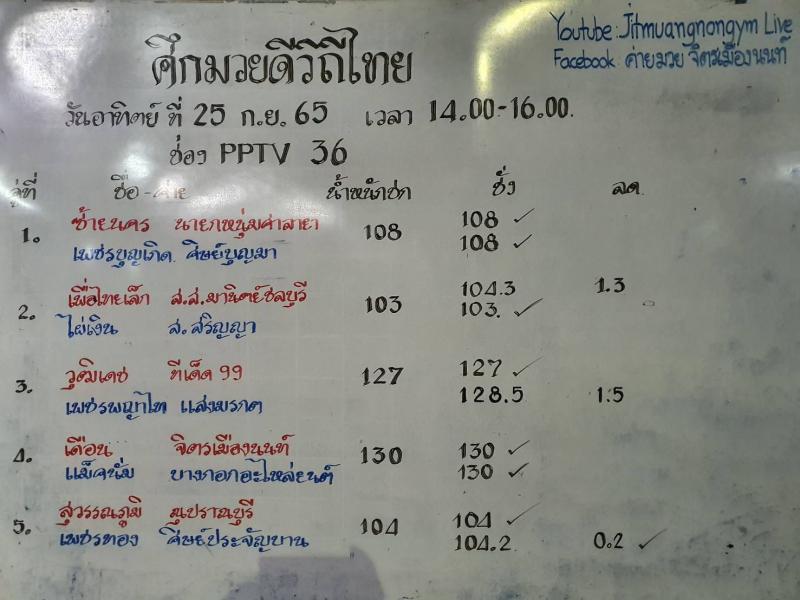 Youtube: Jitmuangnongym Live
Facebook: ค่ายมวย จิตรเมืองนนท์
ศึกมวยดีวิถีไทย
วันอาทิตย์ ที่ 25 ก.ย. 65 เวลา 14.00-16.00.
ช่อง PPTV 36
คู่ที่ ชื่อ-ค่าย น้ำหนักชก ชั่ง ลด
1. ซ้ายนคร นายกหนุ่มศาลายา 108 108 ✓
เพชรบุญเกิด ศิษย์บุญมา 108 ✓
2. เพื่อไทยเล็ก ส.ส.มานิตย์ชลบุรี 103 104.3 1.3
ไผ่เงิน ส.สริญญา 103. ✓
3. วุฒิเดช ทีเด็ด 99 127 127 ✓
เพชรพญาไท แสงมรกต 128.5 1.5
4. เดือน จิตรเมืองนนท์ 130 130 ✓
แม็คนั่ม บางกอกอะไหล่ยนต์ 130 ✓
5. สุวรรณภูมิ ณปราณบุรี 104 104 ✓
เพชรทอง ศิษย์ประจัญบาน 104.2 0.2 ✓